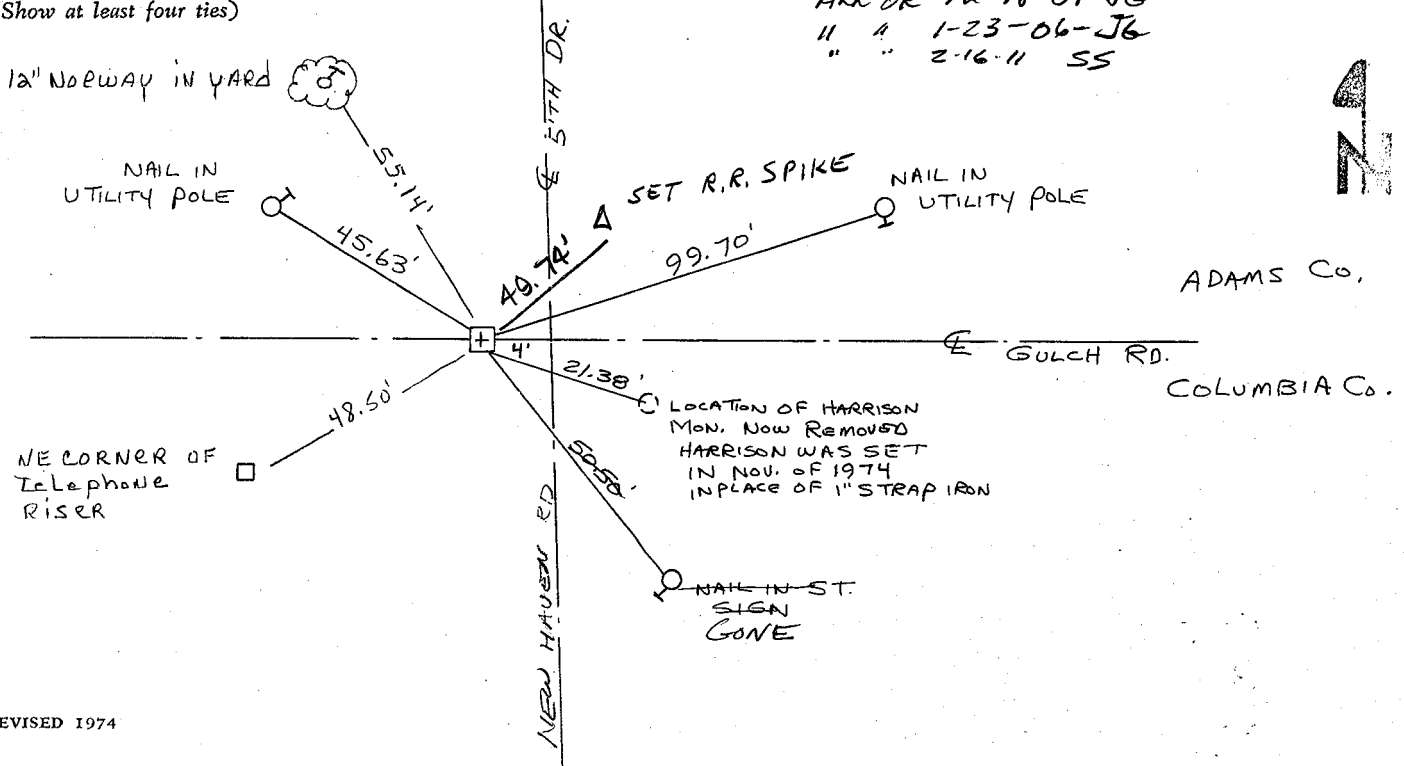 Show at least four ties)
" " 1-23-06-JG
" " 2-16-11 SS
12" NORWAY IN YARD
55.14'
NAIL IN
UTILITY POLE
45.63'
℄ 5TH DR.
SET R.R. SPIKE
49.74'
NAIL IN
UTILITY POLE
99.70'
N
ADAMS Co.
4'
℄ GULCH RD.
COLUMBIA Co.
21.38'
LOCATION OF HARRISON
MON. NOW REMOVED
HARRISON WAS SET
IN NOV. OF 1974
INPLACE OF 1" STRAP IRON
48.50'
NE CORNER OF
TELephone
RISER
50.50'
NEW HAVEN RD
NAIL IN ST.
SIGN
GONE
EVISED 1974